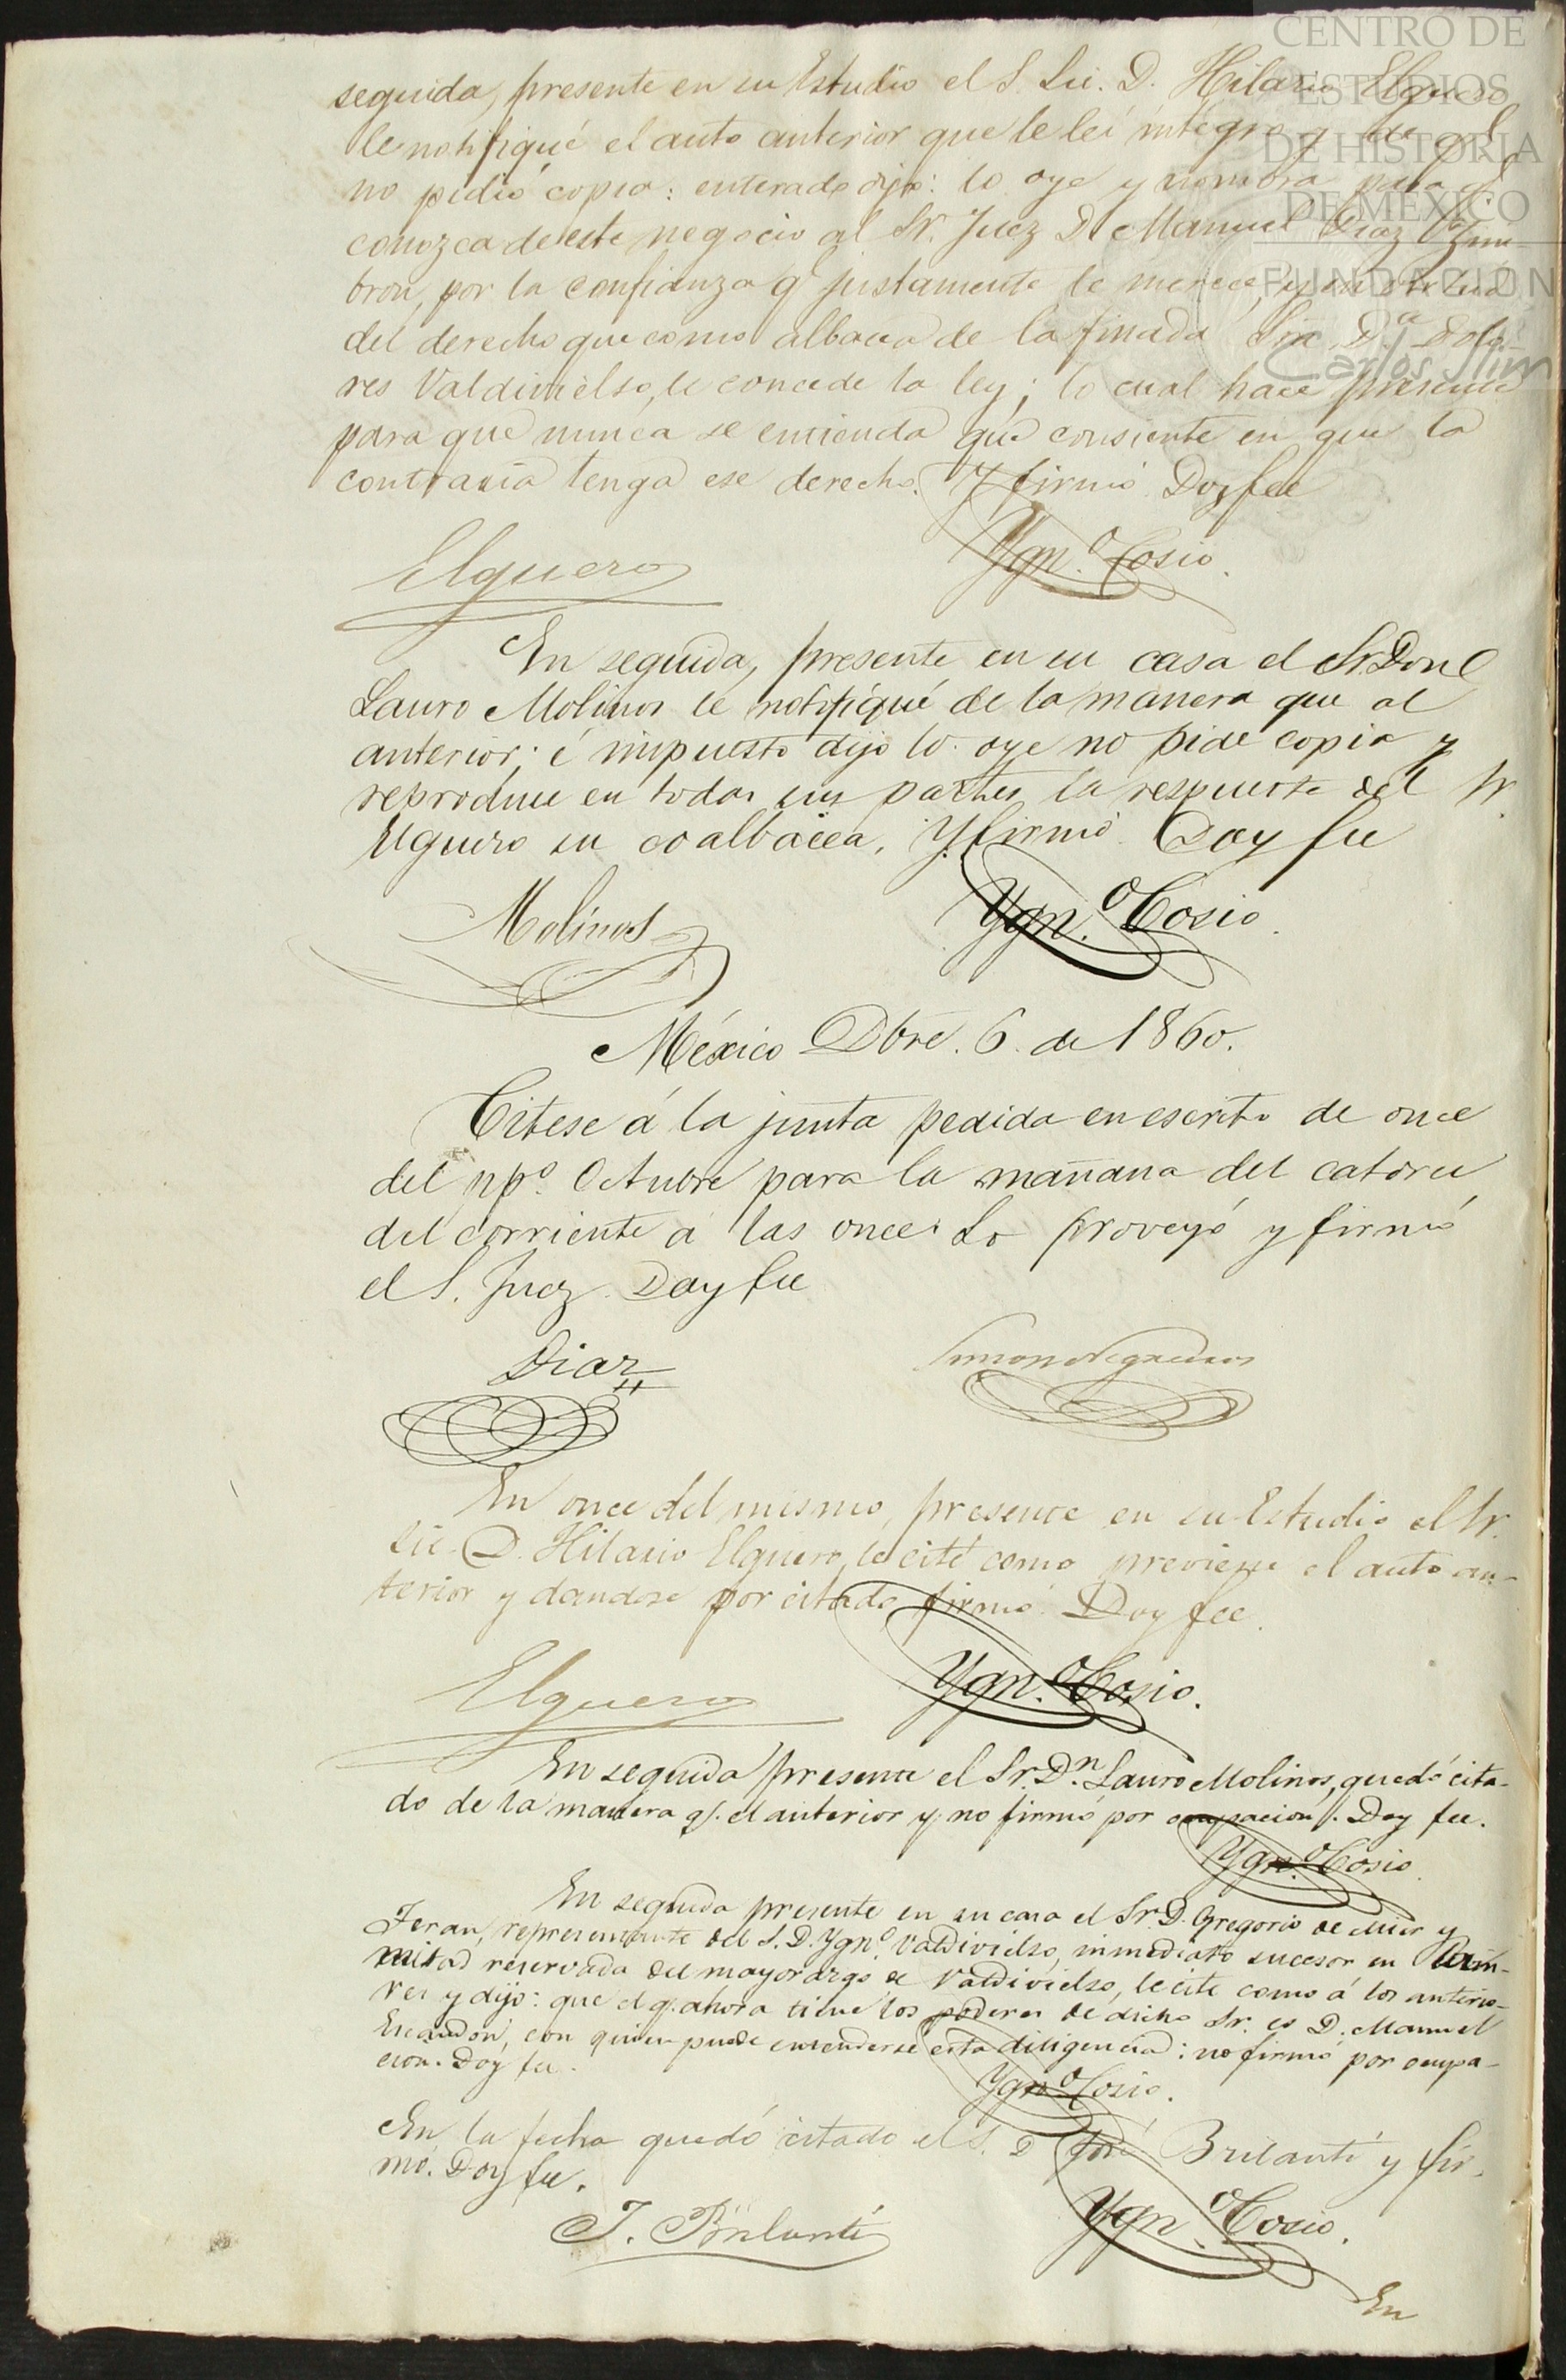 CENTRO DE
ESTUDIOS
DE HISTORIA
DE MÉXICO
FUNDACIÓN
Carlos Slim
seguida, presente en su Estudio el S. Lic. D. Hilario Elguero
le notifiqué el auto anterior que le leí integro y de q.
no pidió copia: enterado dijo: lo oye y nombra para q.
conozca de este negocio al Sr. Juez D. Manuel Diaz Zim-
bron, por la confianza q. justamente le merece, y en virtud
del derecho que como albacea de la finada Sra. D.a Dolo-
res Valdivielso, le concede la ley; lo cual hace presente
para que nunca se entienda que consiente en que la
contraria tenga ese derecho. Y firmó. Doy fee
Elguero
Ygn.o Cosio.
En seguida, presente en su casa el Sr. Don
Lauro Molinos le notifiqué de la manera que al
anterior; é impuesto dijo lo oye no pide copia y
reproduce en todas sus partes la respuesta del Sr.
Elguero su coalbacea. Y firmó. Doy fee
Molinos
Ygn.o Cosio.
México Dbre. 6. de 1860.
Citese á la junta pedida en escrito de once
del ppo. Octubre para la mañana del catorce
del corriente á las once. Lo proveyó y firmó
el S. Juez. Doy fee
Diaz
Simon Negreiros
En once del mismo, presente en su Estudio el Sr.
Lic. D. Hilario Elguero, le cité como previene el auto an-
terior y dandose por citado firmó. Doy fee.
Elguero
Ygn.o Cosio.
En seguida presente el Sr. D.n Lauro Molinos, quedó cita-
do de la manera q. el anterior y no firmó por ocupacion. Doy fee.
Ygn.o Cosio.
En seguida presente en su casa el Sr. D. Gregorio de Mier y
Teran, representante del S. D. Ygn.o Valdivielso, inmediato sucesor en la
mitad reservada del mayorazgo de Valdivielso, le cité como á los anterio-
res y dijo: que el q. ahora tiene los poderes de dicho Sr. es D. Manuel
Escandon, con quien puede entenderse esta diligencia: no firmó por ocupa-
cion. Doy fee.
Ygn.o Cosio.
En la fecha quedó citado el S. D. José Brilanti y fir-
mó. Doy fee.
J. Brilanti
Ygn.o Cosio.
En